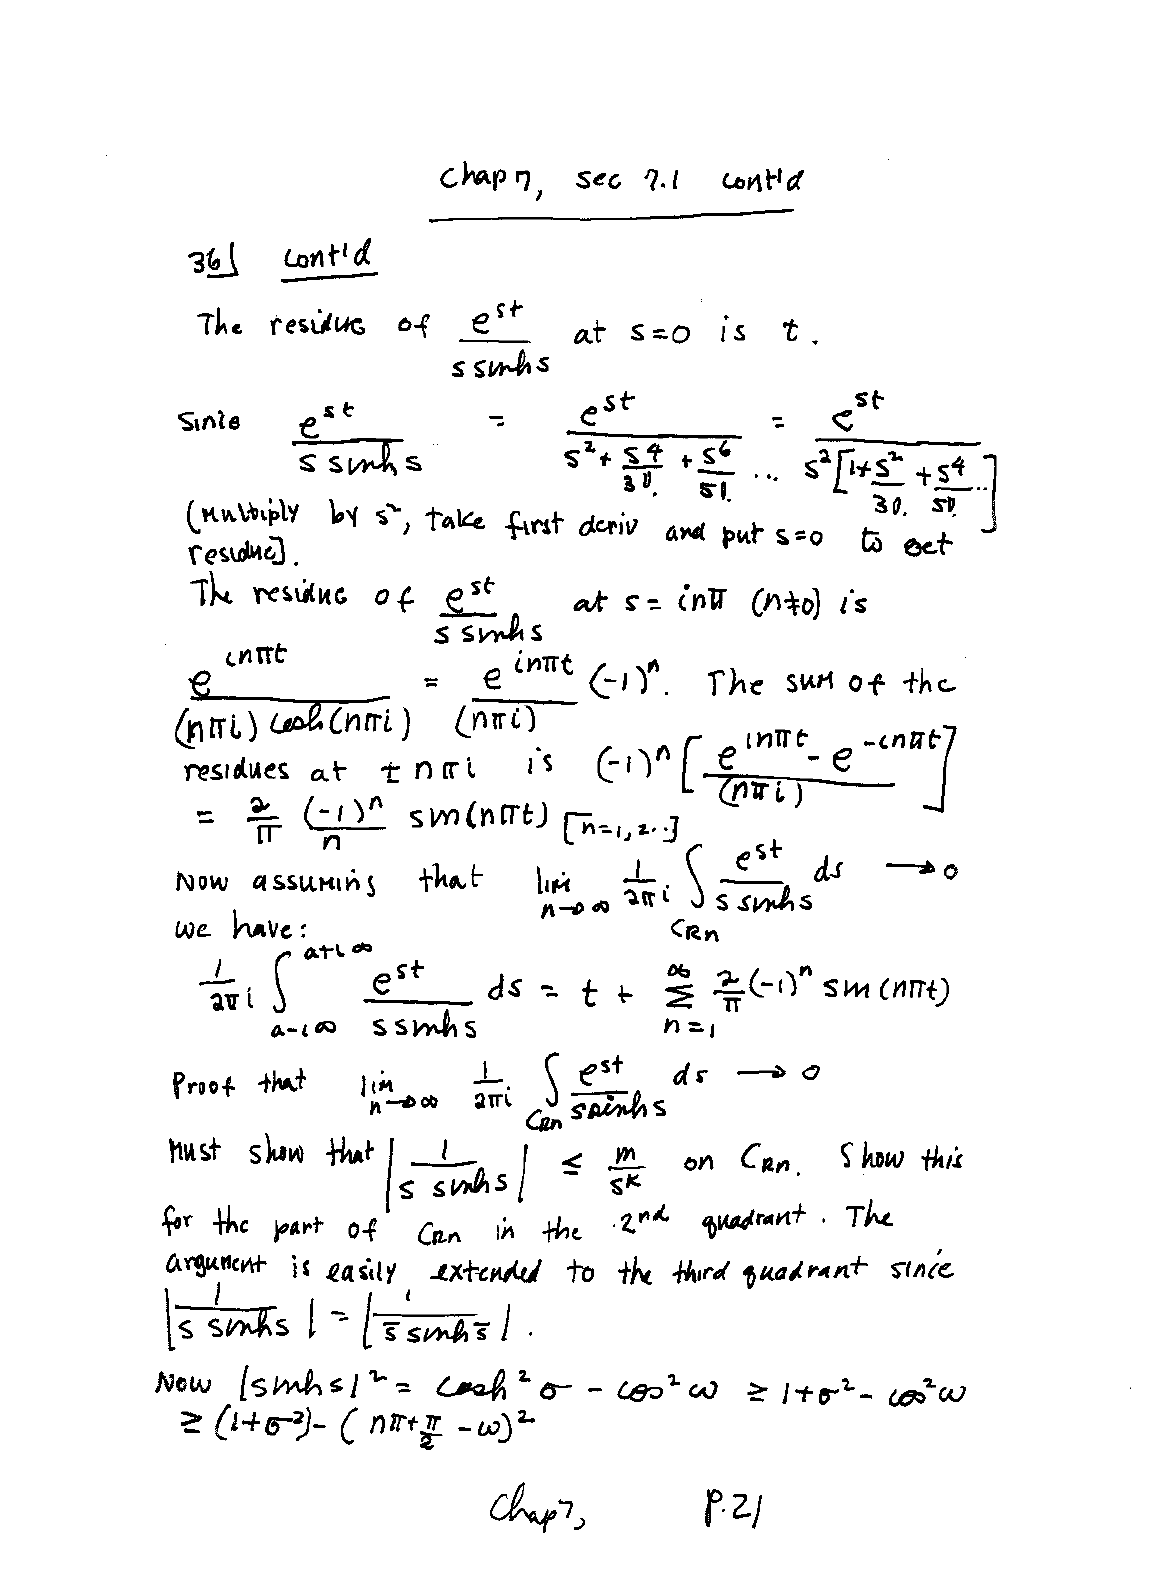 Chap 7, sec 7.1 cont'd
36] cont'd
The residue of e^{st} / (s sinh s) at s=0 is t.
Since e^{st} / (s sinh s) = e^{st} / (s² + s⁴/3! + s⁶/5! ...) = e^{st} / (s² [1 + s²/3! + s⁴/5! ...])
(Multiply by s², take first deriv and put s=0 to get
residue].
The residue of e^{st} / (s sinh s) at s = inπ (n≠0) is
e^{inπt} / ((nπi) cosh(nπi)) = e^{inπt} / (nπi) (-1)ⁿ. The sum of the
residues at ± nπi is (-1)ⁿ [ (e^{inπt} - e^{-inπt}) / (nπi) ]
= 2/π (-1)ⁿ/n sin(nπt) [n=1,2..]
Now assuming that lim_{n→∞} 1/(2πi) ∫_{C_{Rn}} e^{st} / (s sinh s) ds → 0
we have:
1/(2πi) ∫_{a-i∞}^{a+i∞} e^{st} / (s sinh s) ds = t + Σ_{n=1}^{∞} 2/π (-1)ⁿ sin(nπt)
Proof that lim_{n→∞} 1/(2πi) ∫_{C_{Rn}} e^{st} / (s sinh s) ds → 0
Must show that | 1 / (s sinh s) | ≤ m / s^k on C_{Rn}. Show this
for the part of C_{Rn} in the 2nd quadrant. The
argument is easily extended to the third quadrant since
| 1 / (s sinh s) | = | 1 / (s̄ sinh s̄) | .
Now |sinh s|² = cosh² σ - cos² ω ≥ 1+σ² - cos² ω
≥ (1+σ²) - (nπ + π/2 - ω)²
Chap 7, P.21